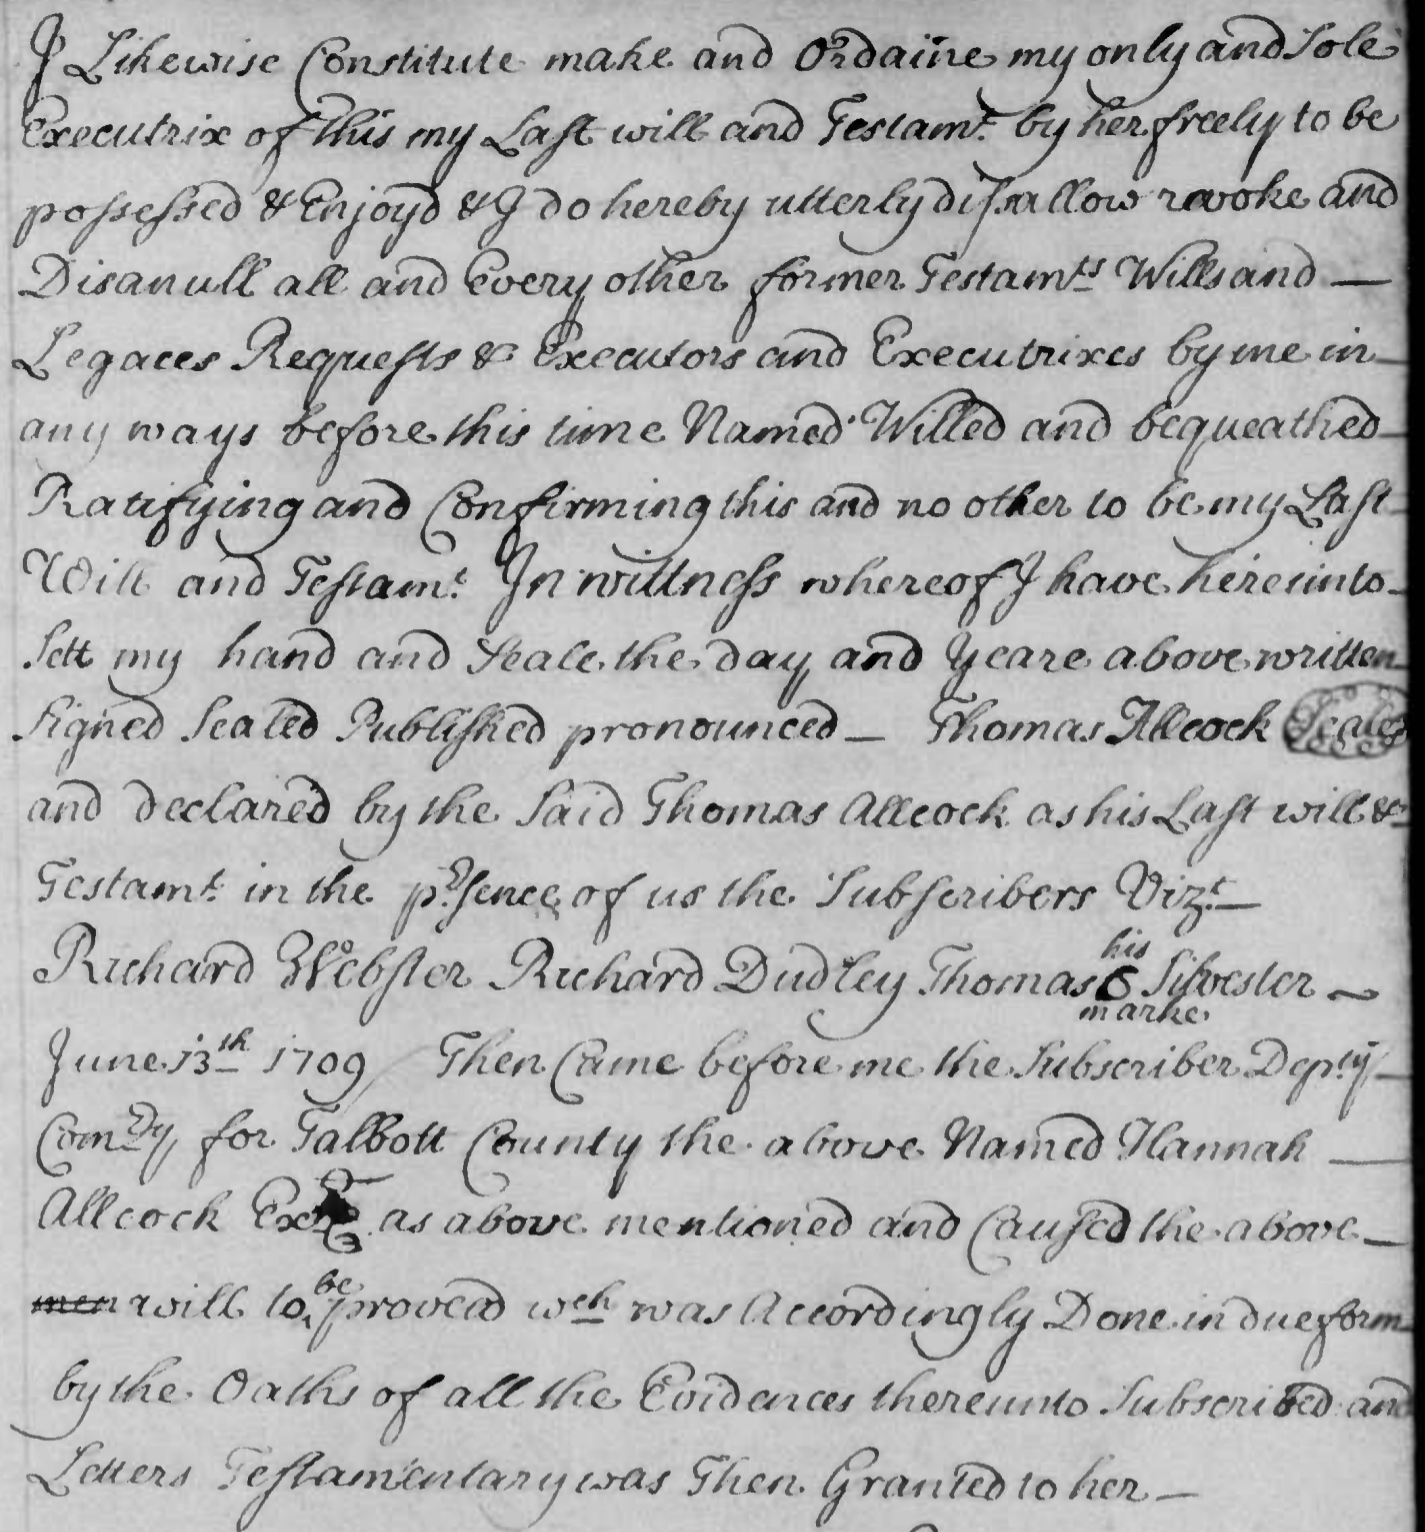 I Likewise Constitute make and Ordaine my only and Sole
Executrix of this my Last will and Testamt. by her freely to be
possessed & Enjoyd & I do hereby utterly disallow revoke and
Disanull all and Every other former Testamts Wills and —
Legaces Requests & Executors and Executrixes by me in
any ways before this time Named Willed and bequeathed
Ratifying and Confirming this and no other to be my Last
Will and Testamt. In wittness whereof I have hereunto
Sett my hand and Seale the day and Yeare above written
Signed Sealed Published pronounced — Thomas Allcock Seale
and declared by the Said Thomas Allcock as his Last will &
Testamt. in the prsence of us the Subscribers Vizt. —
Richard Webster Richard Dudley Thomas his marke Silvester ~
June 13th 1709 Then Came before me the Subscriber Depty
Comry for Talbott County the above Named Hannah —
Allcock as above mentioned and Caused the above
men will to be proved wch was Accordingly Done in due form
by the Oaths of all the Evidences thereunto Subscribed and
Letters Testamentary was Then Granted to her —